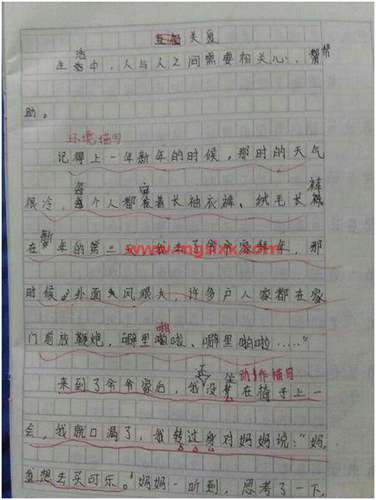 关爱
生活中，人与人之间需要相关心，帮
助。
环境描写
记得上一年新年的时候，那时的天气
很冷，每个人都穿着长袖衣裤、绒毛长裤
在新年的第二天，我去了爷爷家拜年，那
www.mgslxx.com
时候，外面大风很大，许多户人家都在家
门前放鞭炮，噼里啪啦、噼里啪啦……"
动作描写
来到了爷爷家后，我没坐在椅子上一
会，我就口渴了，我转过身对妈妈说："妈
想去买可乐。"妈妈一听到，思考了一下